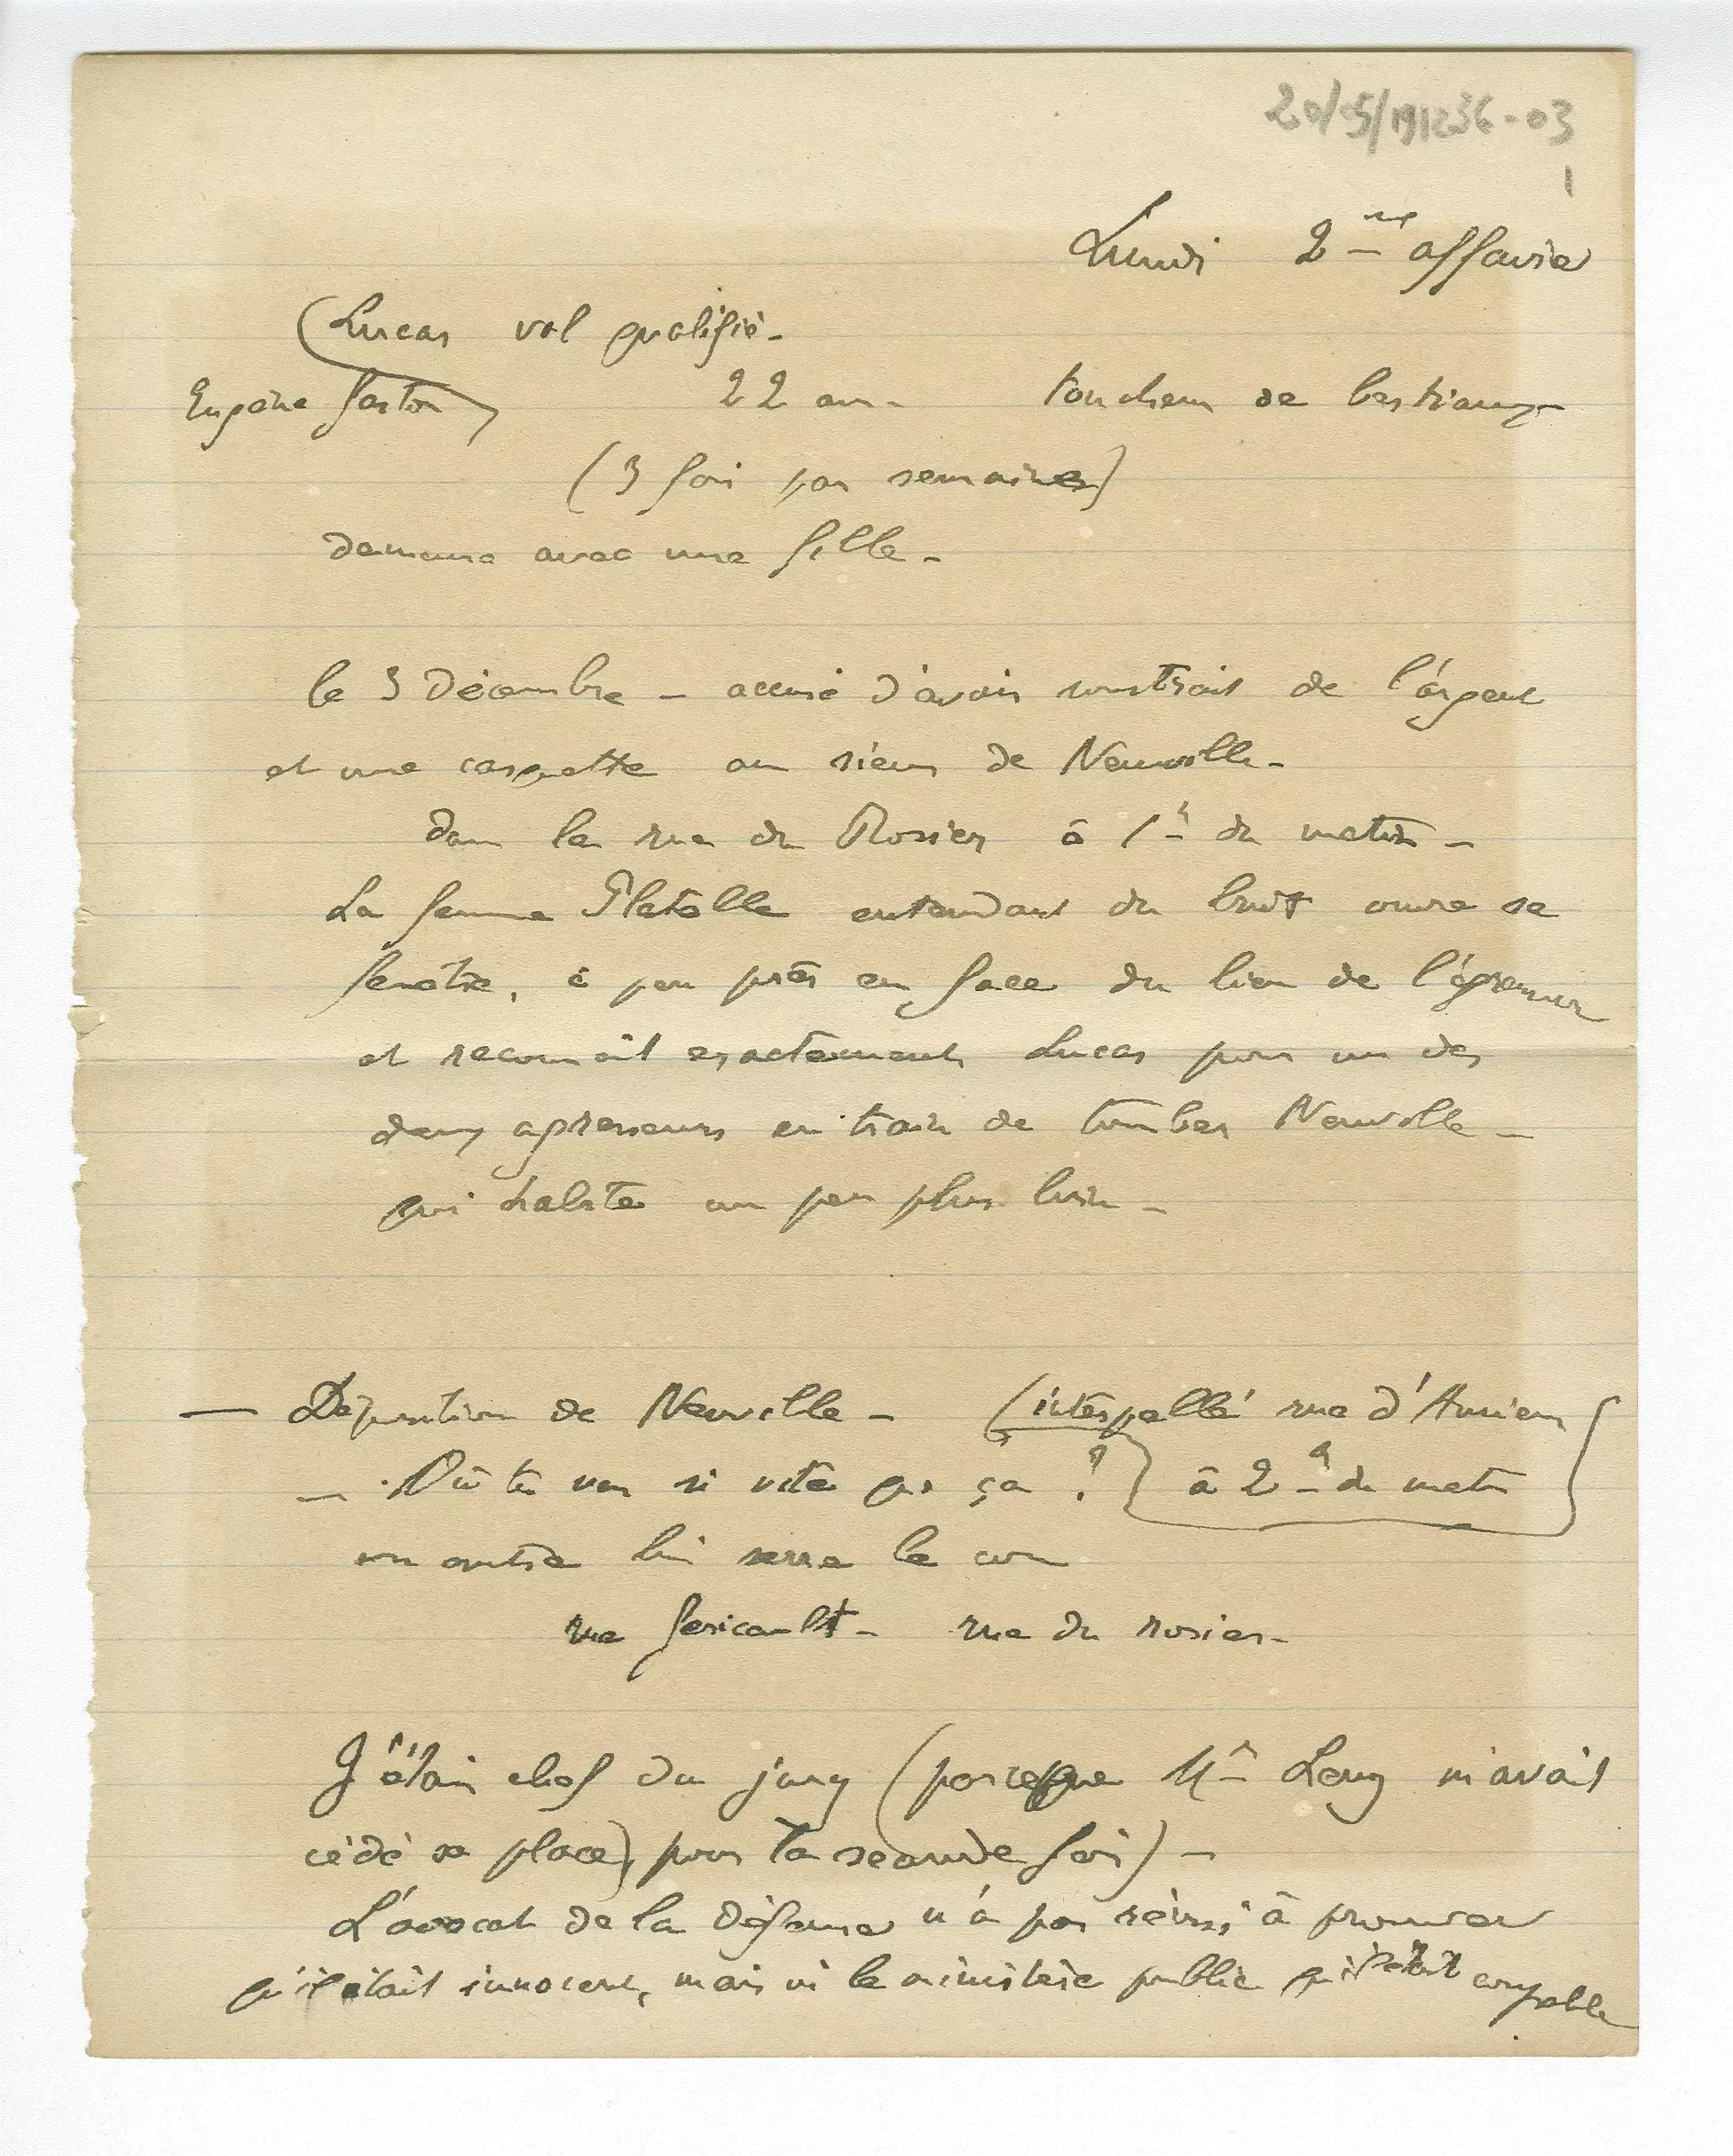 20/05/191236-03
1
Lundi 2me affaire
(Lucas vol qualifié -
Eugène Gaston 22 ans - toucheur de bestiaux -
(3 fois par semaine)
demeure avec une fille -
le 3 Décembre - accusé d'avoir soustrait de l'argent
et une casquette au sieur de Neuville -
dans la rue du Rosier à 1h du matin -
La femme Platelle entendant du bruit ouvre sa
fenêtre, à peu près en face du lieu de l'agresseur
et reconnaît exactement Lucas pour un des
deux agresseurs en train de tomber Neuville -
qui habite un peu plus loin -
— Déposition de Neuville - (interpellé rue d'Amiens
— Où tu vas si vite que ça ? à 2h du matin
un autre lui serre le cou
rue Gericault - rue du rosier -
J'étais chef du jury (parceque Mr Lony m'avait
cédé sa place, pour la seconde fois) -
L'avocat de la défense n'a pas réussi à prouver
qu'il était innocent, mais ni le ministère public qu'il était coupable